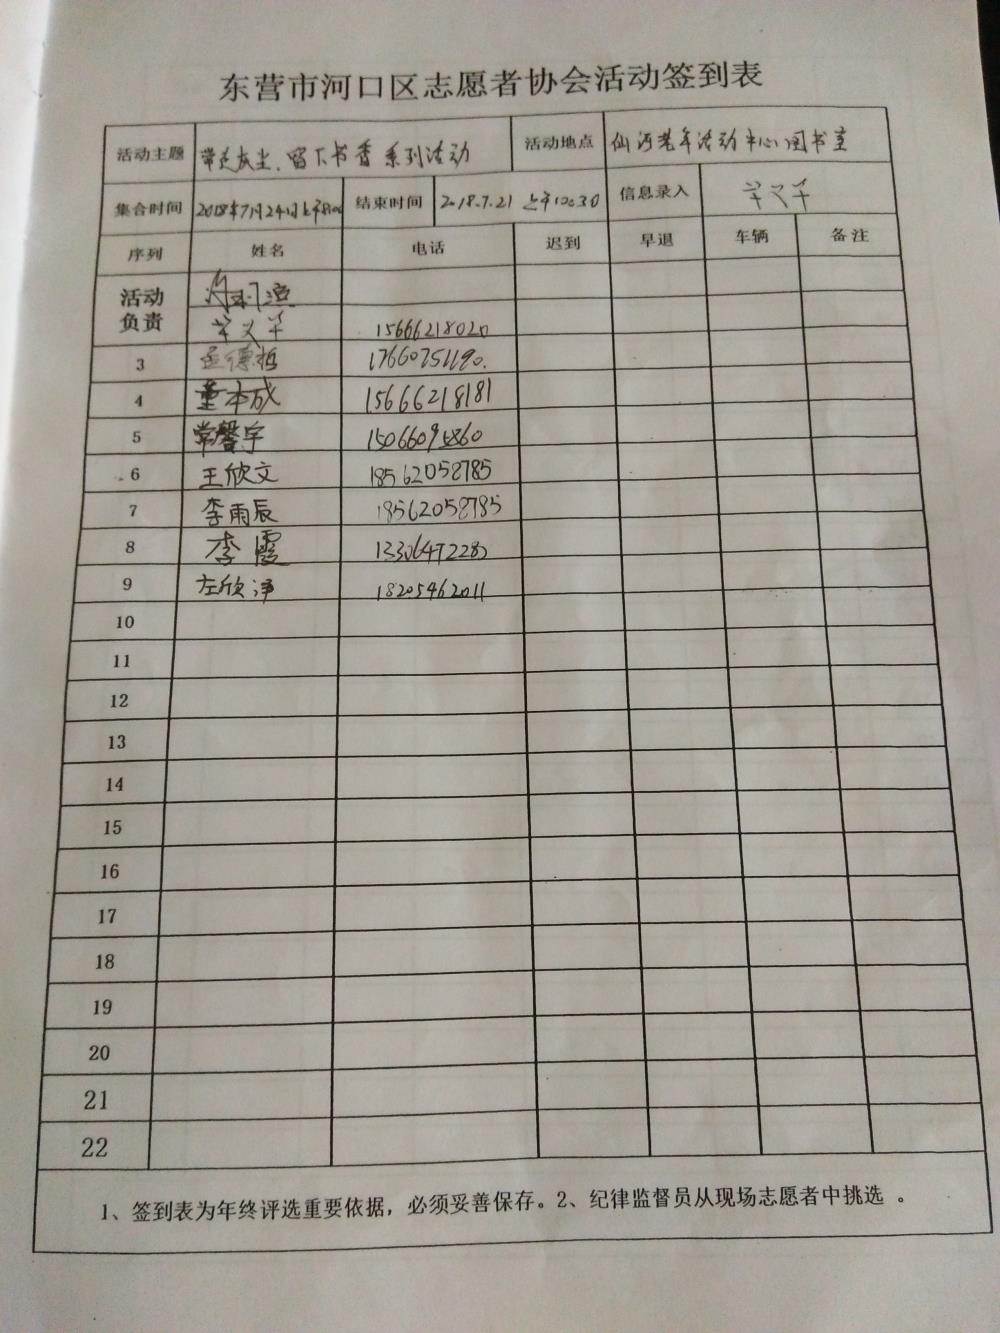 东营市河口区志愿者协会活动签到表
活动主题 带走灰尘、留下书香系列活动 活动地点 仙河老年活动中心图书室
集合时间 2018年7月24日上午8:00 结束时间 2018.7.21 上午10:30 信息录入
序列 姓名 电话 迟到 早退 车辆 备注
活动
负责
15666218020
3 孟德哲 17660751190.
4 董本成 15666218181
5 常馨宇 15066095860
6 王欣文 18562058785
7 李雨辰 18562058785
8 李霞
9 左欣净 18205462011
10
11
12
13
14
15
16
17
18
19
20
21
22
1、签到表为年终评选重要依据，必须妥善保存。2、纪律监督员从现场志愿者中挑选 。